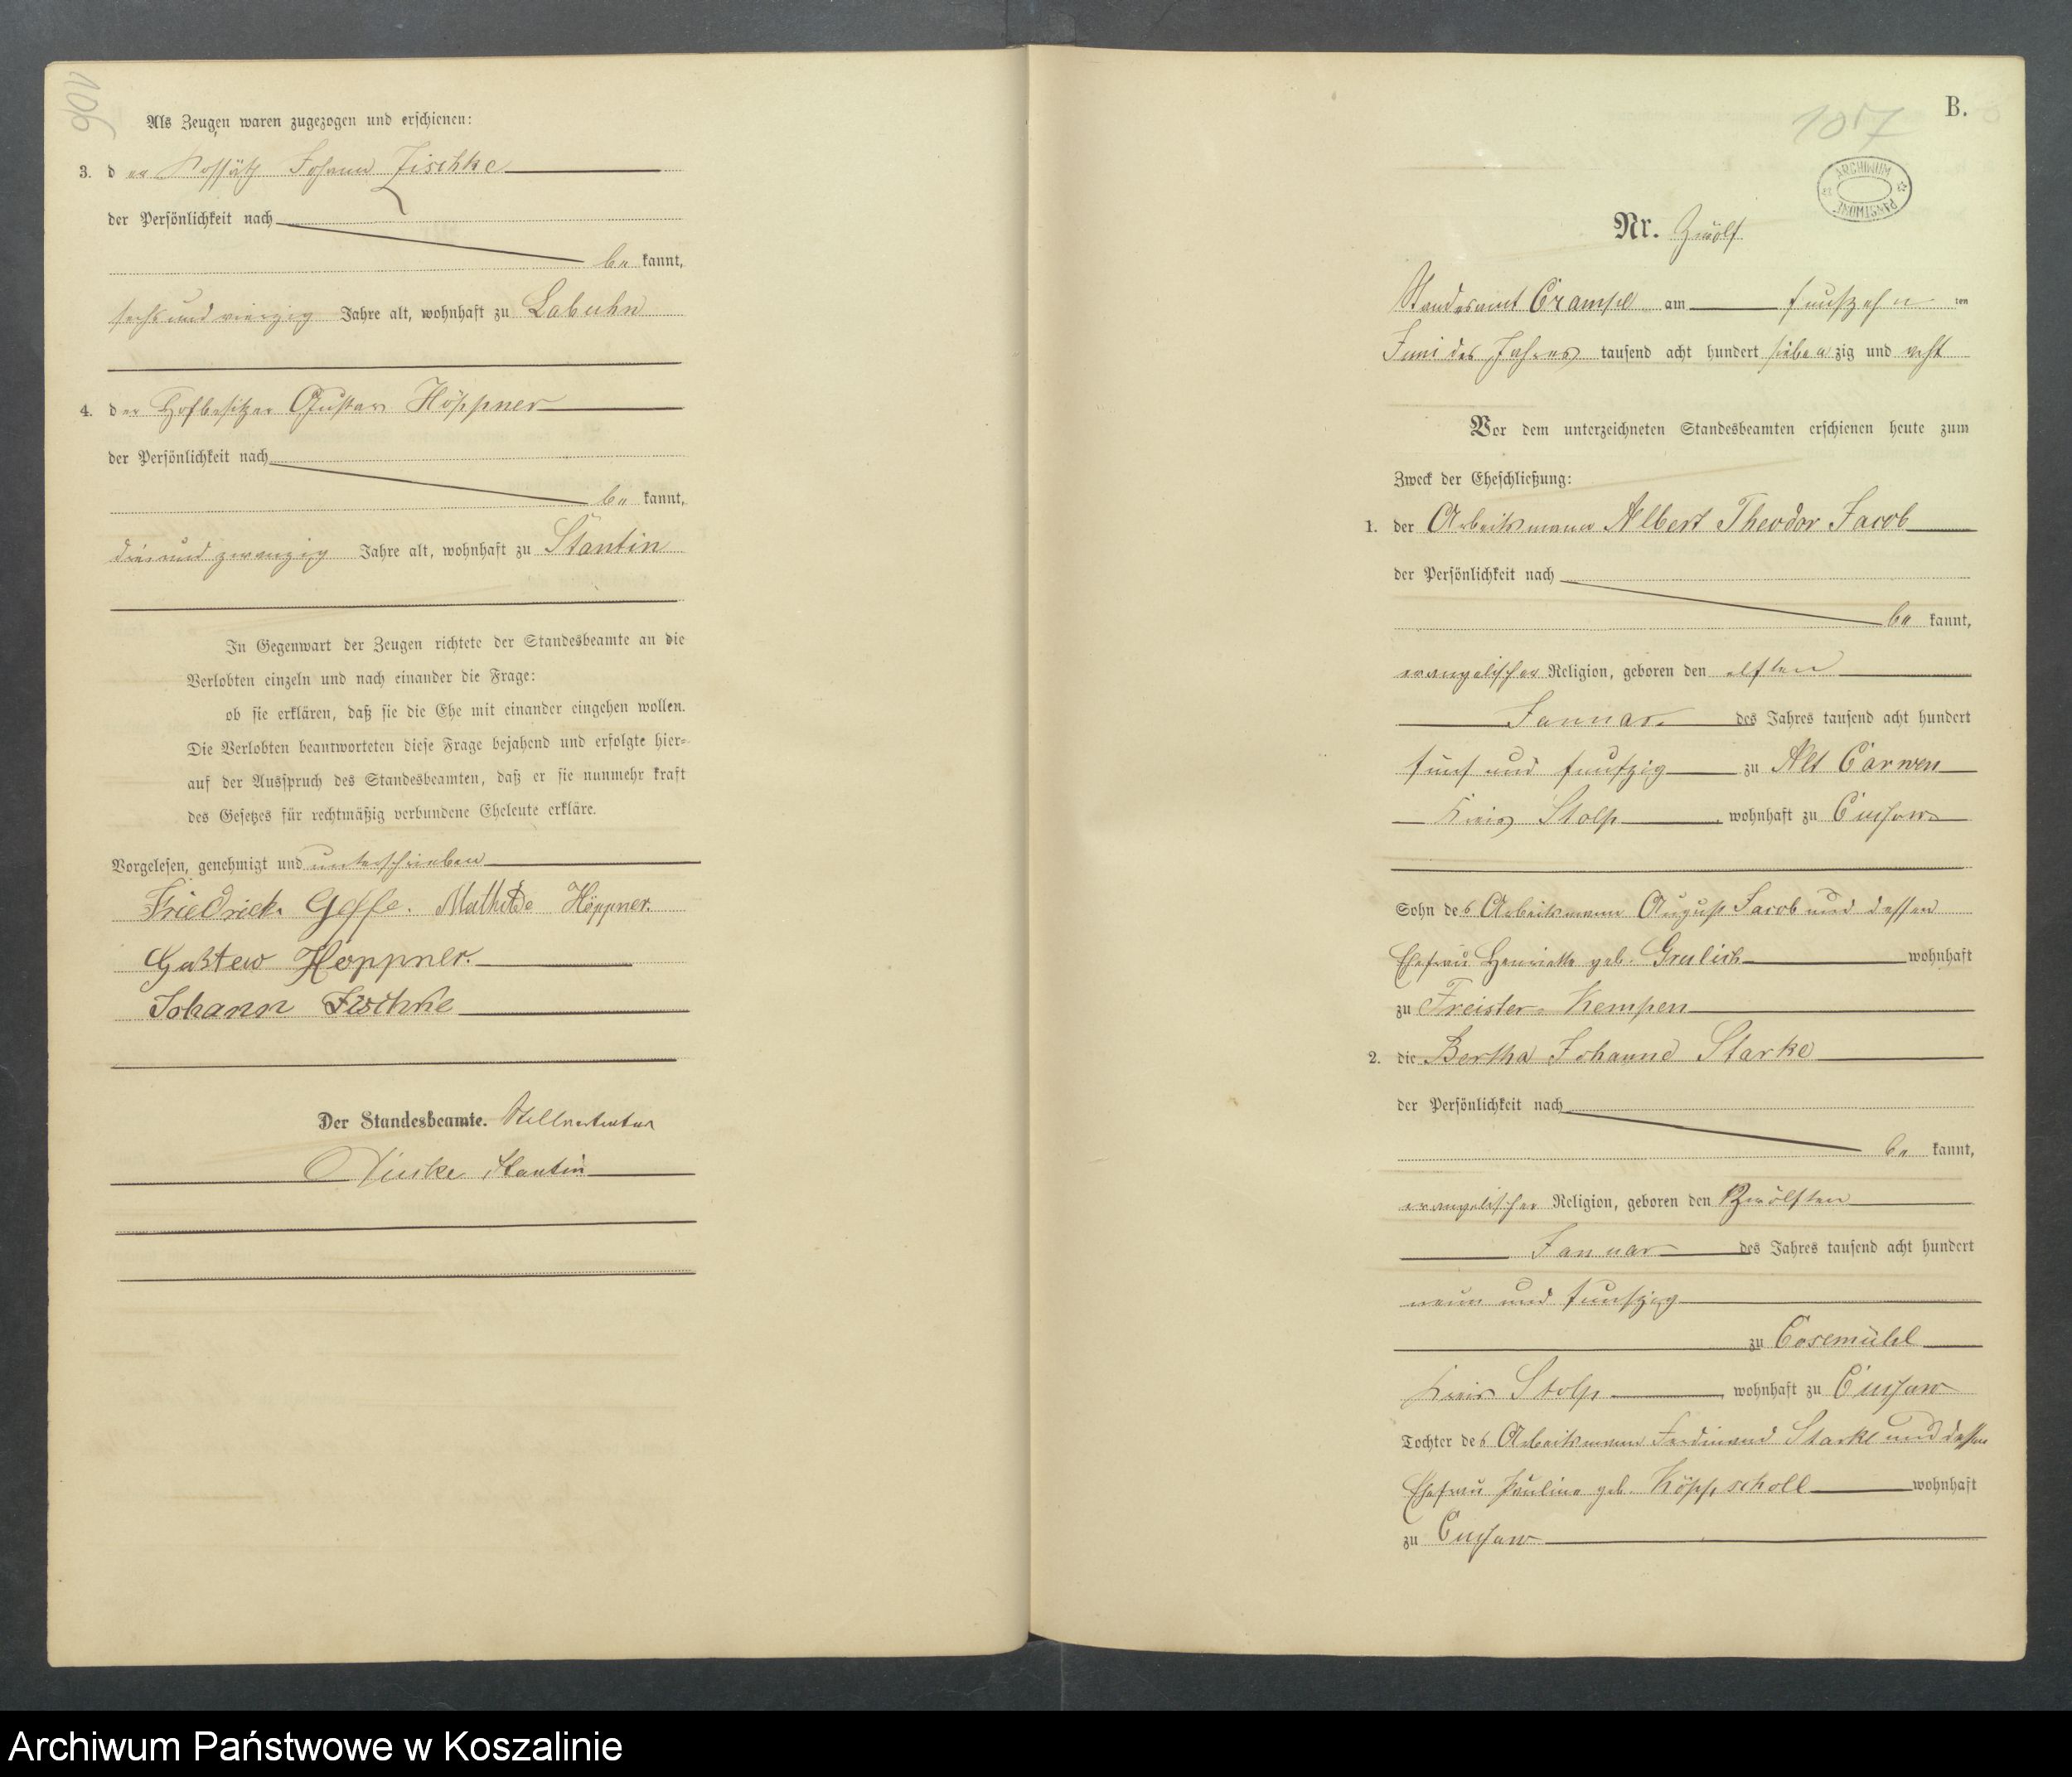 106
Als Zeugen waren zugezogen und erschienen:
3. der Kossäth Johann Zischke
der Persönlichkeit nach
be kannt,
sechs und vierzig Jahre alt, wohnhaft zu Labuhn
4. der Hofbesitzer Gustav Höppner
der Persönlichkeit nach
be kannt,
drei und zwanzig Jahre alt, wohnhaft zu Stantin
In Gegenwart der Zeugen richtete der Standesbeamte an die
Verlobten einzeln und nach einander die Frage:
ob sie erklären, daß sie die Ehe mit einander eingehen wollen.
Die Verlobten beantworteten diese Frage bejahend und erfolgte hier-
auf der Ausspruch des Standesbeamten, daß er sie nunmehr kraft
des Gesetzes für rechtmäßig verbundene Eheleute erkläre.
Vorgelesen, genehmigt und unterschrieben
Friedrich Mathilde Höppner.
Gustew Höppner.
Johann Zischke
Der Standesbeamte. Stellvertreter
Stantin
107
B.
ARCHIWUM PAŃSTWOWE
Nr. Zwölf
Standesamt Crampe am funfzehn ten
Juni des Jahres tausend acht hundert sieben zig und acht
Vor dem unterzeichneten Standesbeamten erschienen heute zum
Zweck der Eheschließung:
1. der Arbeitsmann Albert Theodor Jacob
der Persönlichkeit nach
be kannt,
evangelischer Religion, geboren den elften
Januar des Jahres tausend acht hundert
fünf und funfzig zu Alt Carwen
Kreis Stolp, wohnhaft zu Cussow
Sohn des Arbeitsmann August Jacob und dessen
Ehefrau Henriette geb. Grulich wohnhaft
zu Freister-Kempen
2. die Bertha Johanne Starke
der Persönlichkeit nach
be kannt,
evangelischer Religion, geboren den Zwölften
Januar des Jahres tausend acht hundert
neun und funfzig
zu Cosemühl
Kreis Stolp, wohnhaft zu Cussow
Tochter des Arbeitsmann Ferdinand Starke und dessen
Ehefrau Pauline geb. Köppscholl wohnhaft
zu Cussow
Archiwum Państwowe w Koszalinie